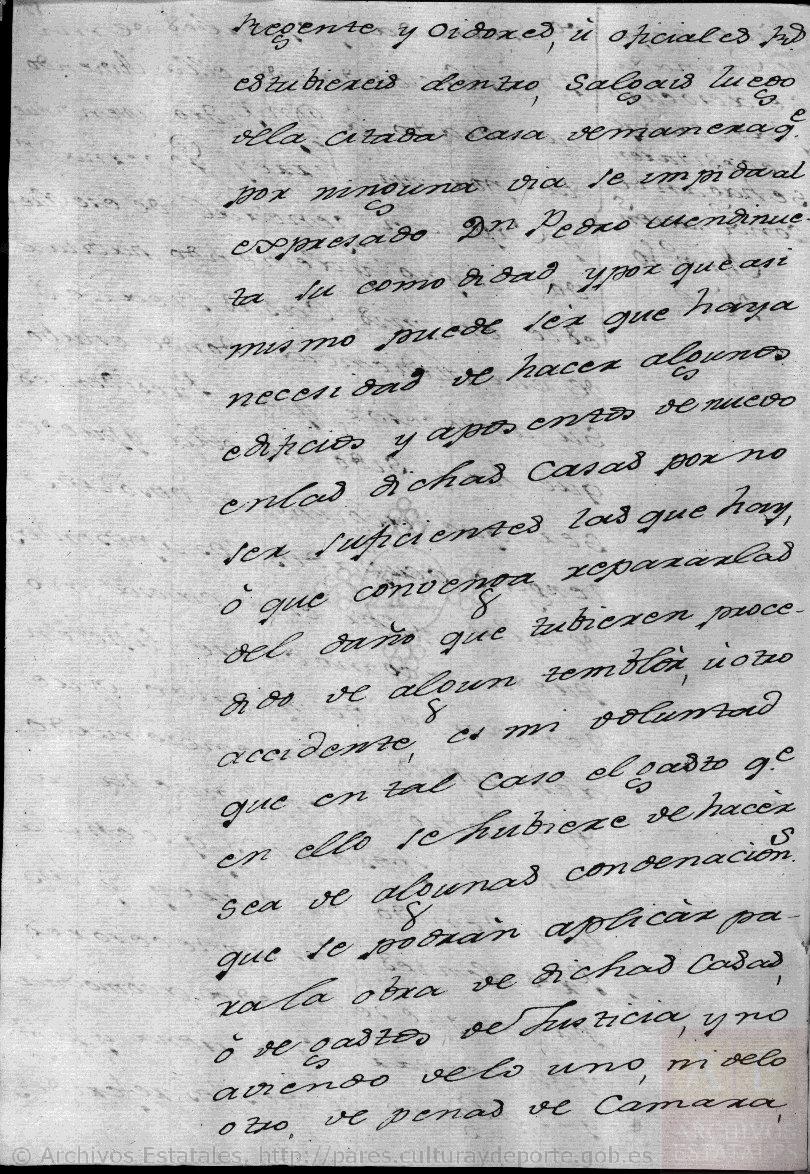 Regente y Oidores, ú oficiales Rs
estubiereis dentro, Salgais luego
dela citada casa demanera qe.
por ninguna via se impida al
expresado Dn Pedro Mendinue-
ta su comodidad y por que asi
mismo puede sér que haya
necesidad de hacer algunos
edificios y aposentos de nuevo
enlas dichas Casas por no
ser suficientes las que hay,
ó que convenga repararlas
del daño que tubieren proce-
dido de algun temblòr, ú otro
accidente, es mi voluntad
que en tal caso el gasto qe.
en ello se hubiere de hacèr
sea de algunas condenacions.
que se podràn aplicàr pa-
ra la obra de dichas Casas,
ó de gastos de Justicia, y no
aviendo delo uno, ni delo
otro, de penas de Camara,
© Archivos Estatales, http://pares.culturaydeporte.gob.es